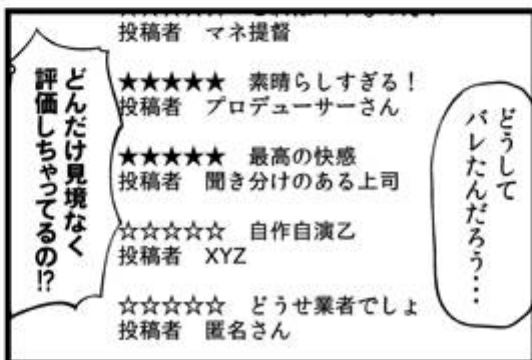 どうして
バレたんだろう・・・
投稿者　マネ提督
★★★★★　素晴らしすぎる！
投稿者　プロデューサーさん
★★★★★　最高の快感
投稿者　聞き分けのある上司
☆☆☆☆☆　自作自演乙
投稿者　XYZ
☆☆☆☆☆　どうせ業者でしょ
投稿者　匿名さん
どんだけ見境なく
評価しちゃってるの!?